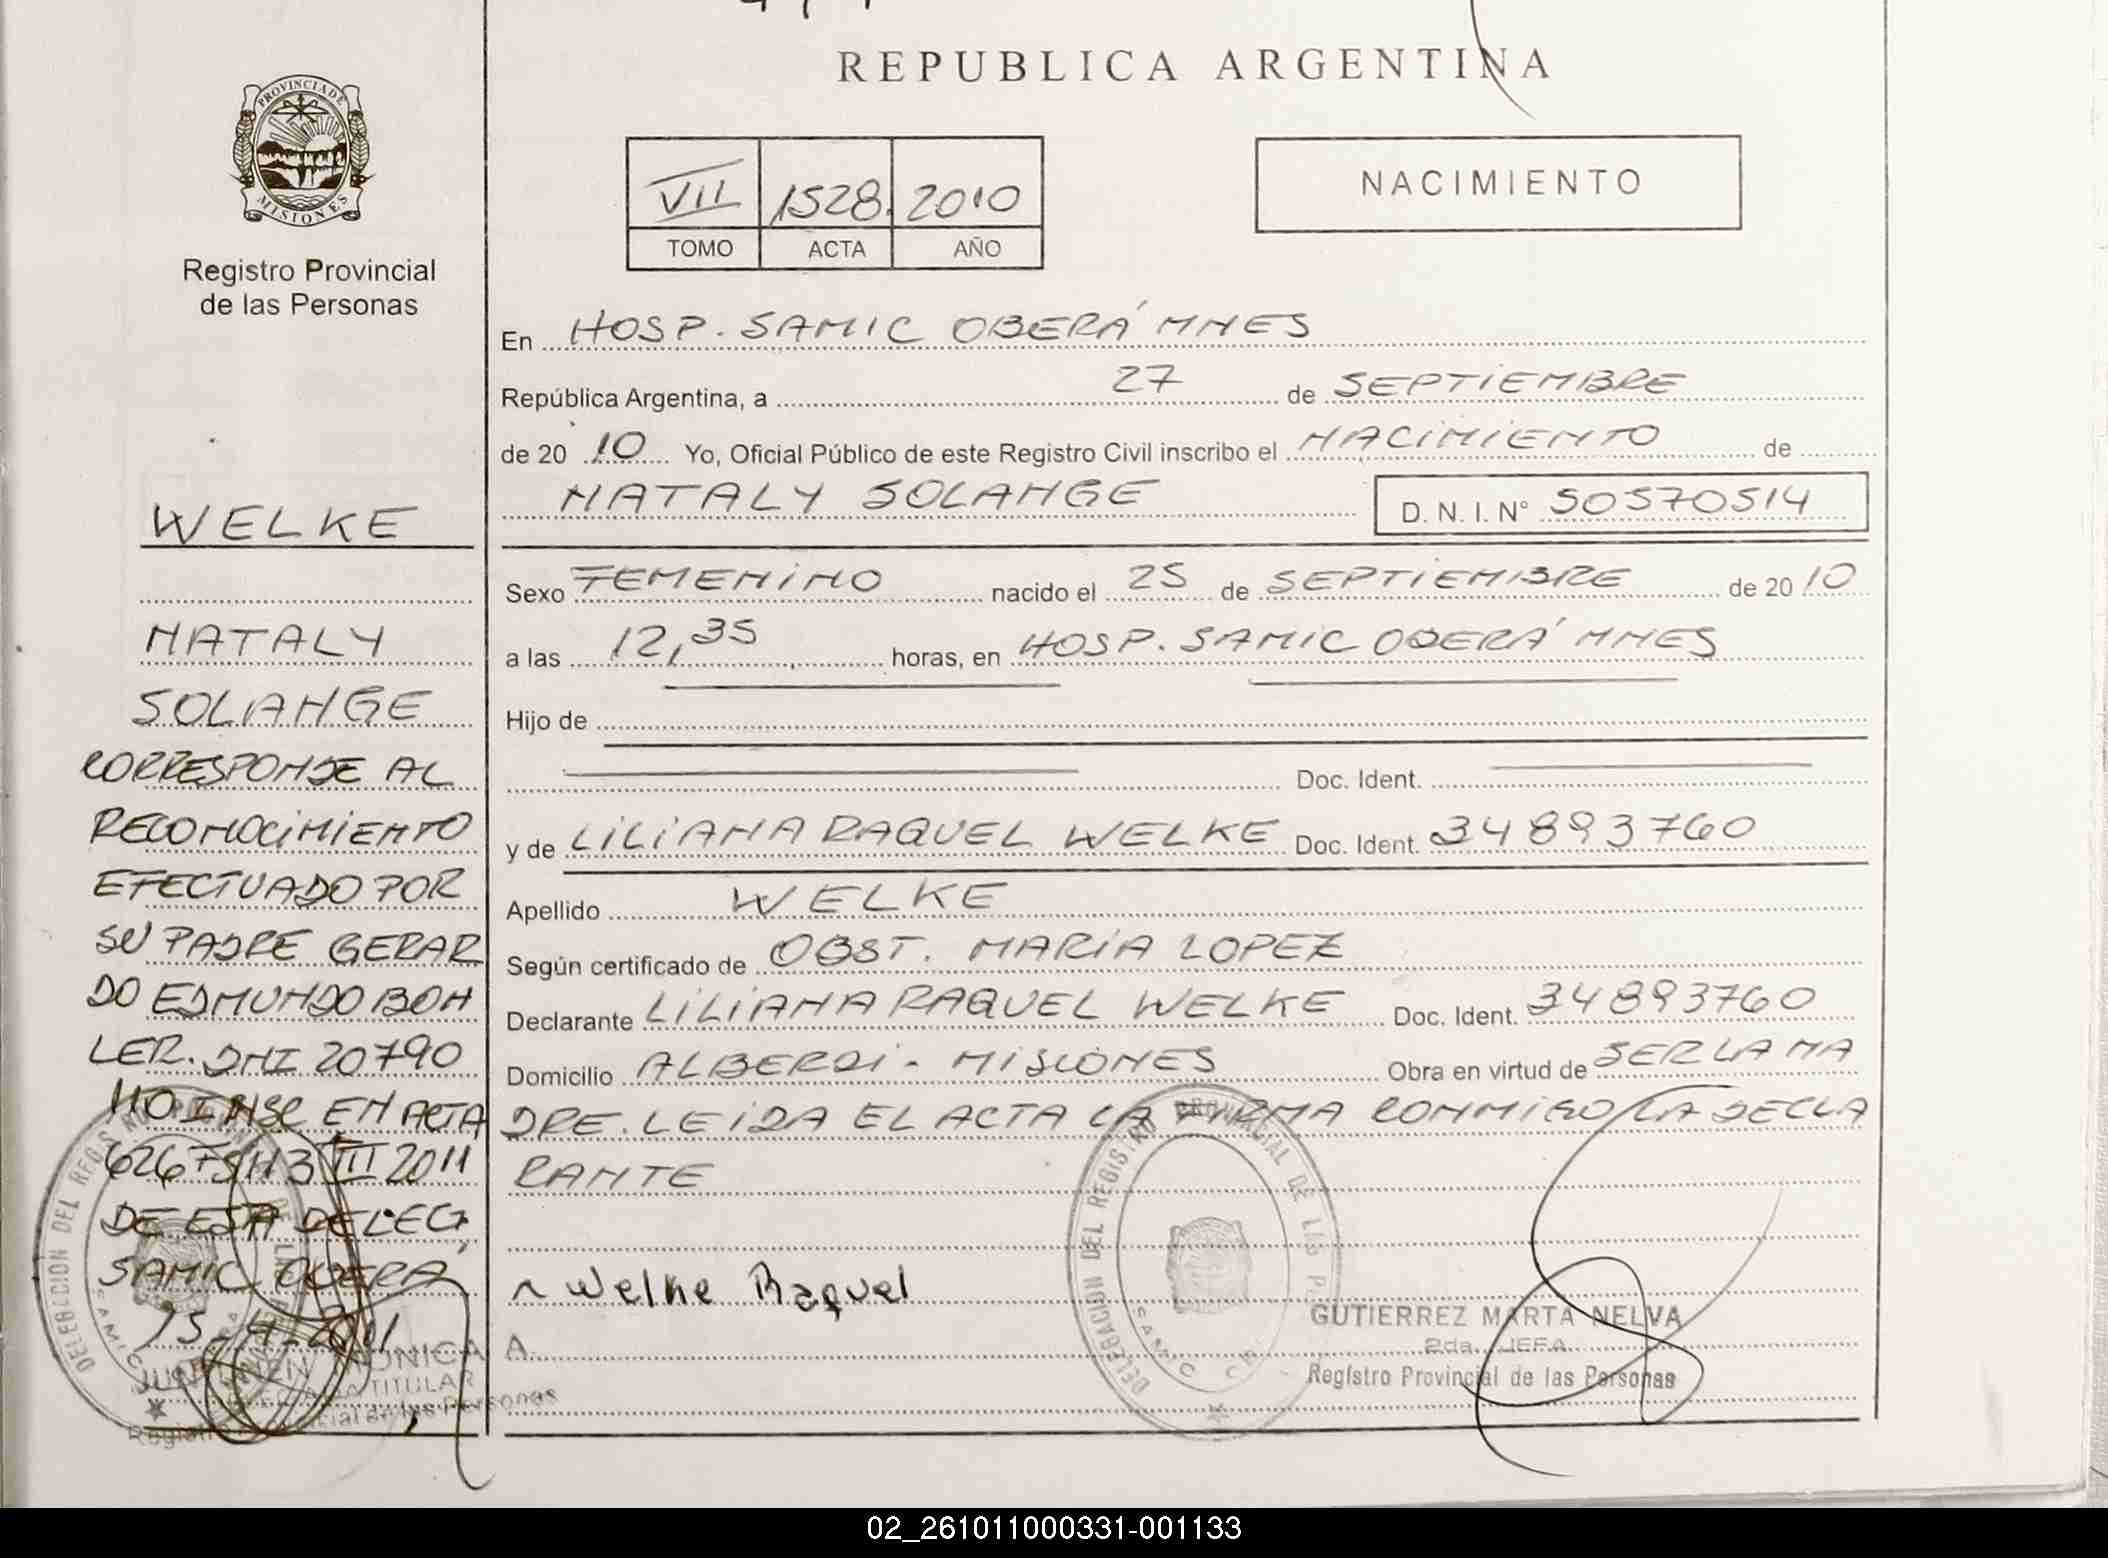 REPUBLICA ARGENTINA
PROVINCIA DE
MISIONES
Registro Provincial
de las Personas
VII 1528 2010
TOMO ACTA AÑO
NACIMIENTO
En HOSP. SAMIC OBERÁ MNES
República Argentina, a 27 de SEPTIEMBRE
de 20 10 Yo, Oficial Público de este Registro Civil inscribo el NACIMIENTO de
NATALY SOLANGE D. N. I. N° 50570514
Sexo FEMENINO nacido el 25 de SEPTIEMBRE de 20 10
a las 12,35 horas, en HOSP. SAMIC OBERÁ MNES
Hijo de
Doc. Ident.
y de LILIANA RAQUEL WELKE Doc. Ident. 34893760
Apellido WELKE
Según certificado de OBST. MARIA LOPEZ
Declarante LILIANA RAQUEL WELKE Doc. Ident. 34893760
Domicilio ALBERDI - MISIONES Obra en virtud de SER LA MA
DRE. LEIDA EL ACTA LA FIRMA CONMIGO LA DECLA
RANTE
Welke Raquel
GUTIERREZ MARTA NELVA
2da. JEFA
Registro Provincial de las Personas
WELKE
NATALY
SOLANGE
CORRESPONDE AL
RECONOCIMIENTO
EFECTUADO POR
SU PADRE GERAR
DO EDMUNDO BOH
LER. DNI 20790
110 INSC EN ACTA
626 Tº III 2011
DE ESTA DELEG
SAMIC OBERA
15-4-2011
MONICA A.
TITULAR
Registro Provincial de las Personas
DELEGACION DEL REGISTRO PROVINCIAL DE LAS
SAMIC
02_261011000331-001133